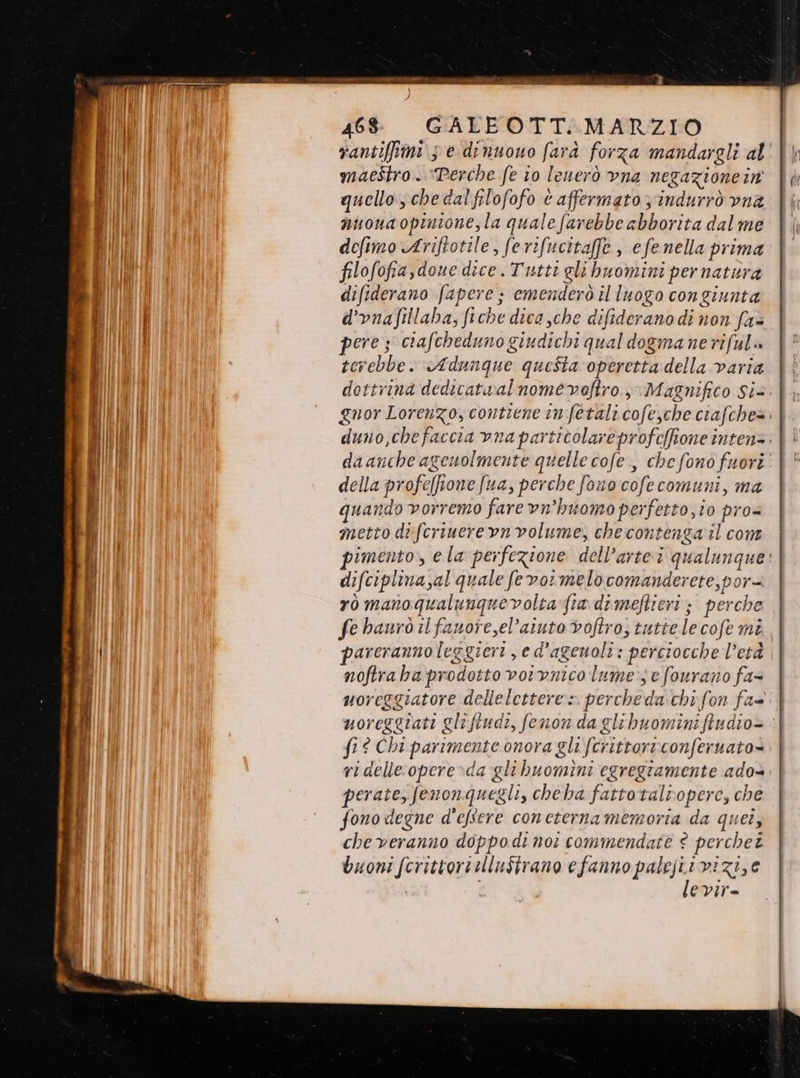 468 GALEOTT. MARZIO
rantiſſimi ; e dinuouo ſarà forza mandargli al
maeſtro. Perche ſe io leuerò vna negazione in
quello, che dal filoſofo è affermato, indurrò vna
nuoua opinione, la quale ſarebbe abborita dal me
deſimo Ariſtotile, ſe riſucitaſſe, e ſe nella prima
filoſofia, doue dice. Tutti gli huomini per natura
diſiderano ſapere ; emenderò il luogo con giunta
d'vna ſillaba, ſiche dica, che diſiderano di non ſa=
pere ; ciaſcheduno giudichi qual dogma ne riſul=
terebbe. Adunque queſta operetta della varia
dottrina dedicata al nome voſtro, Magnifico Si=
gnor Lorenzo, contiene in ſe tali coſe, che ciaſche=
duno, che faccia vna particolare profeſſione inten=
da anche ageuolmente quelle coſe, che ſono fuori
della profeſſione ſua, perche ſono coſe comuni, ma
quando vorremo fare vn'huomo perfetto, io pro=
metto di ſcriuere vn volume, che contenga il com
pimento, e la perfezione dell'arte i qualunque
diſciplina, al quale ſe voi me lo comanderete, por=
rò mano qualunque volta ſia di meſtieri ; perche
ſe haurò il fauore, e l'aiuto voſtro, tutte le coſe mi
pareranno leggieri, e d'ageuoli : perciocche l'età
noſtra ha prodotto voi vnico lume, e ſourano fa=
uoreggiatore delle lettere : perche da chi ſon fa=
uoreggiati gli ſtudi, ſe non da gli huomini ſtudio=
ſi ? Chi parimente onora gli ſcrittori conſeruato=
ri delle opere da gli huomini egregiamente ado=
perate, ſe non quegli, che ha fatto tali opere, che
ſono degne d'eſſere con eterna memoria da quei,
che veranno doppo di noi commendate ? perche i
buoni ſcrittori illuſtrano e fanno paleſi i vizi, e
le vir=